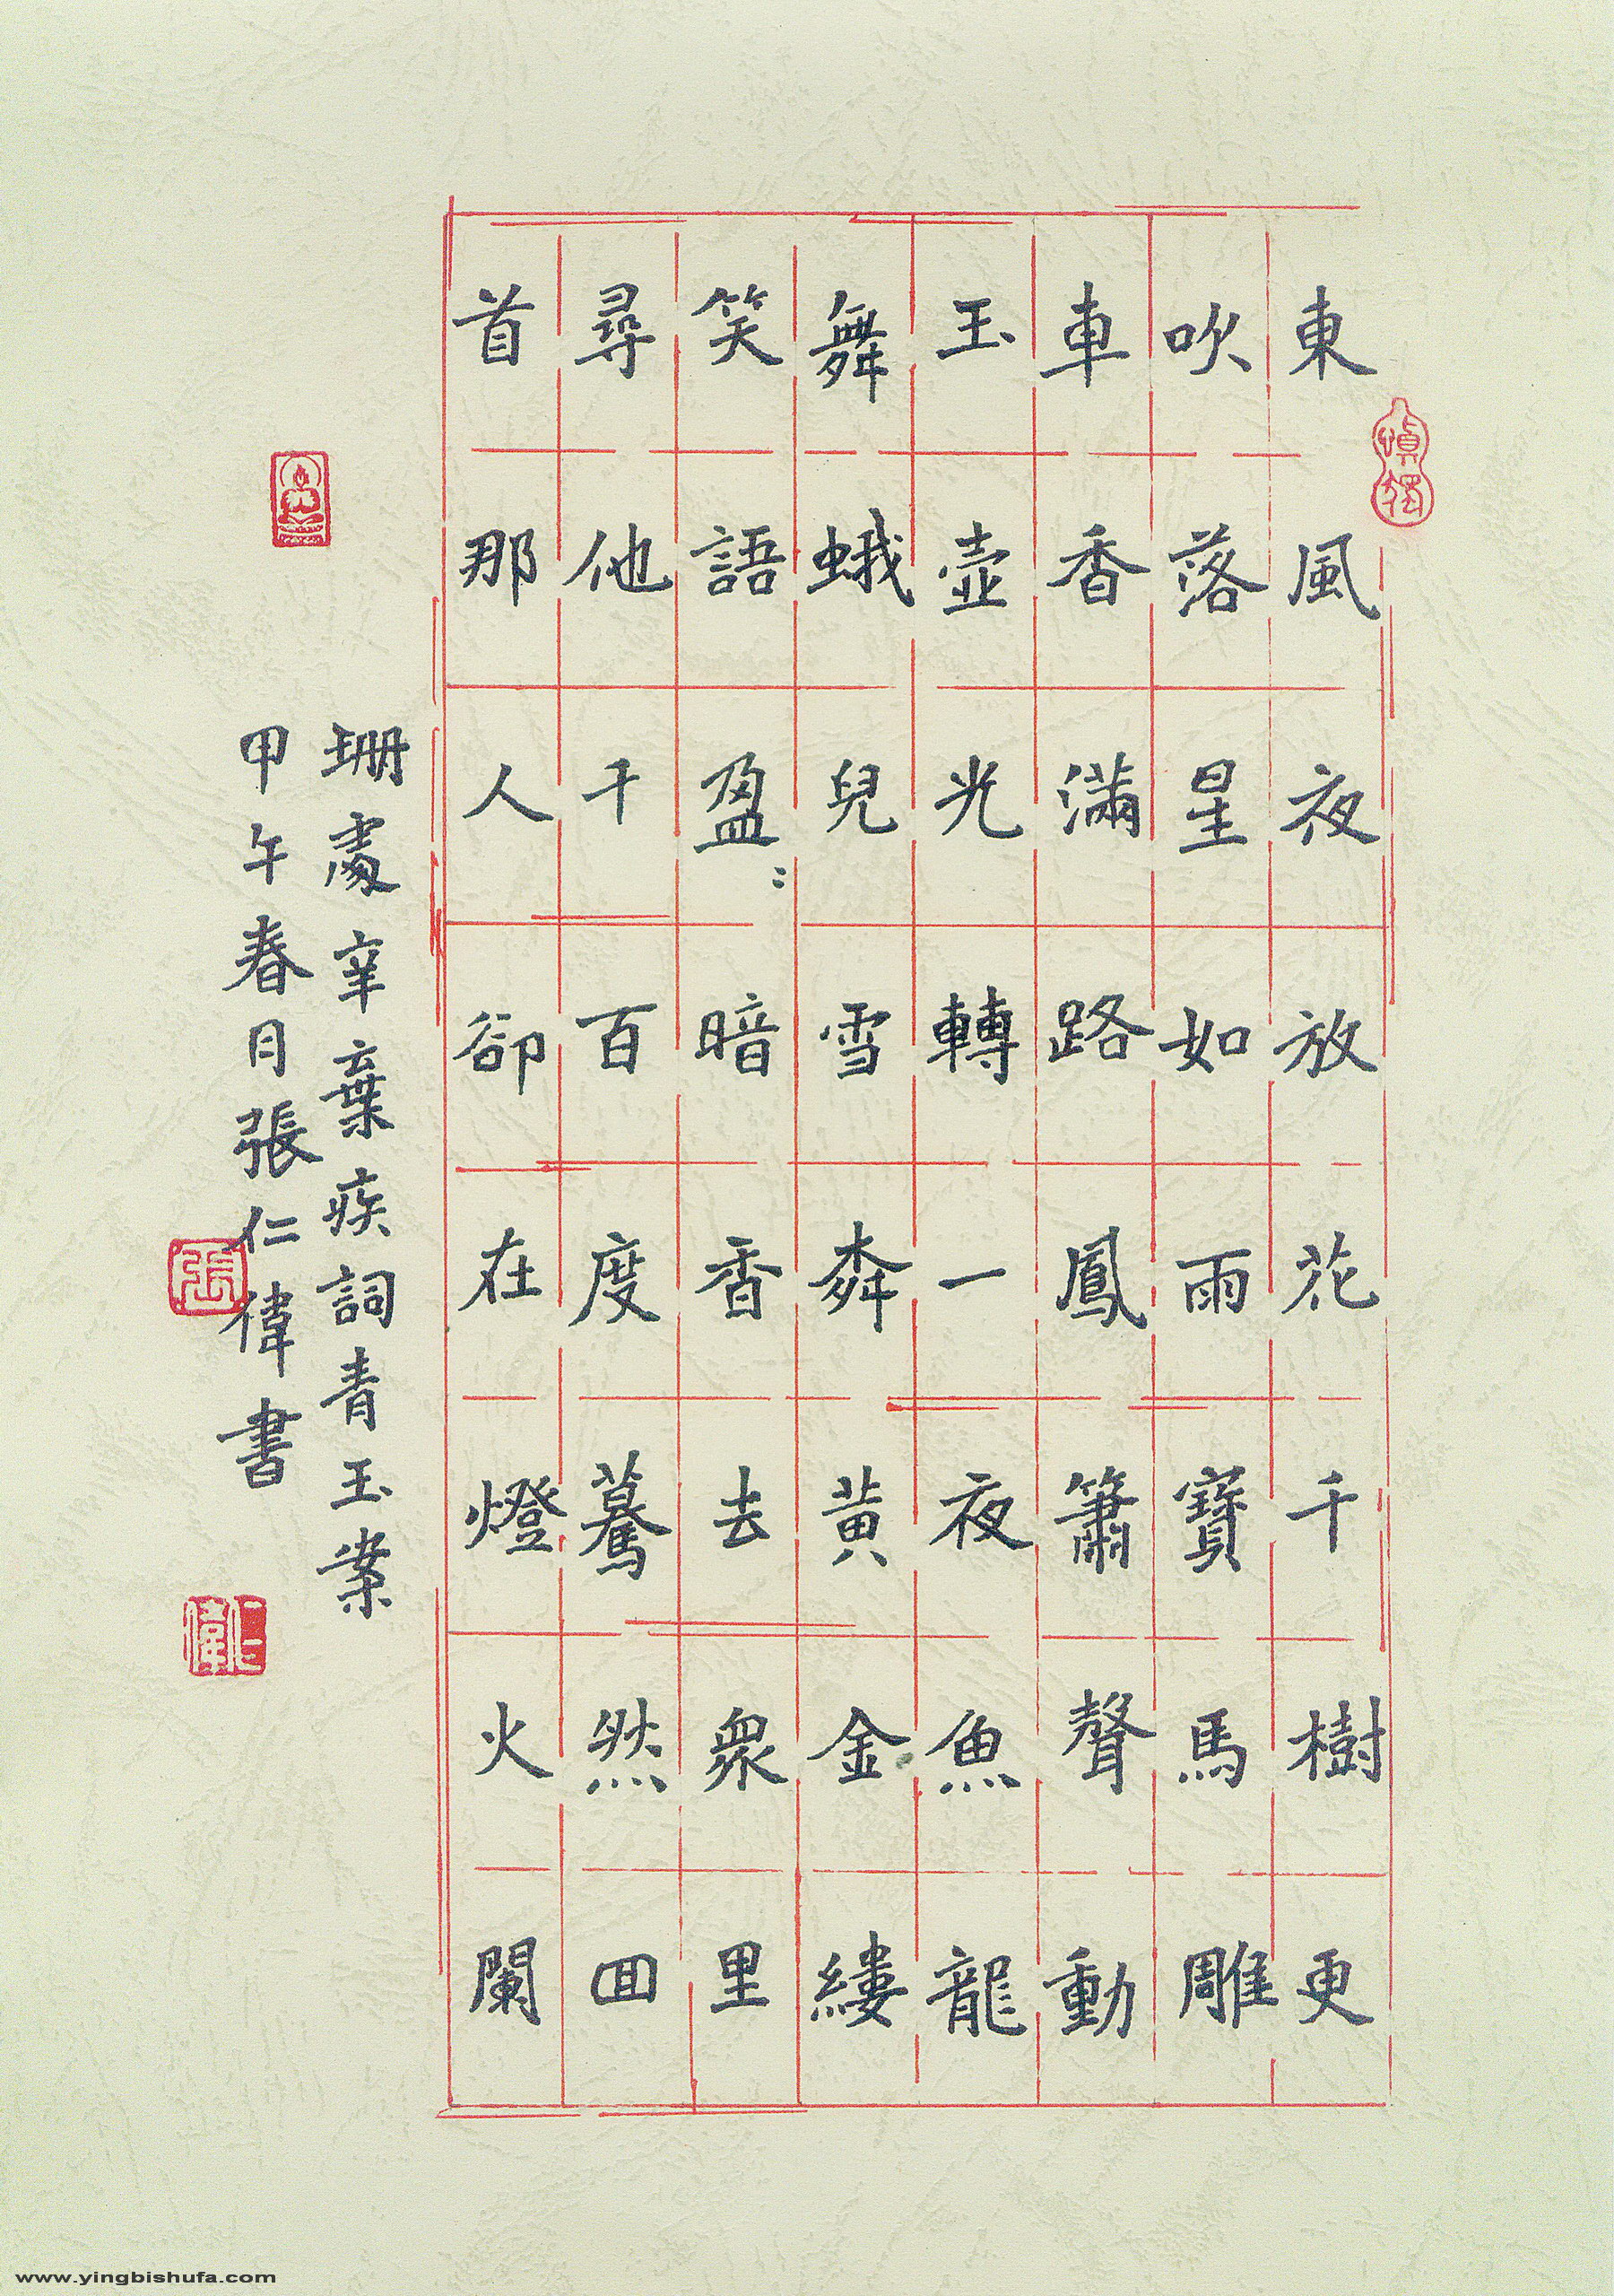 慎獨
東風夜放花千樹更
吹落星如雨寶馬雕
車香滿路鳳簫聲動
玉壺光轉一夜魚龍
舞蛾兒雪柳黃金縷
笑語盈〻暗香去衆里
尋他千百度驀然回
首那人卻在燈火闌
珊處辛棄疾詞青玉案
甲午春月張仁偉書
張
仁偉
www.yingbishufa.com